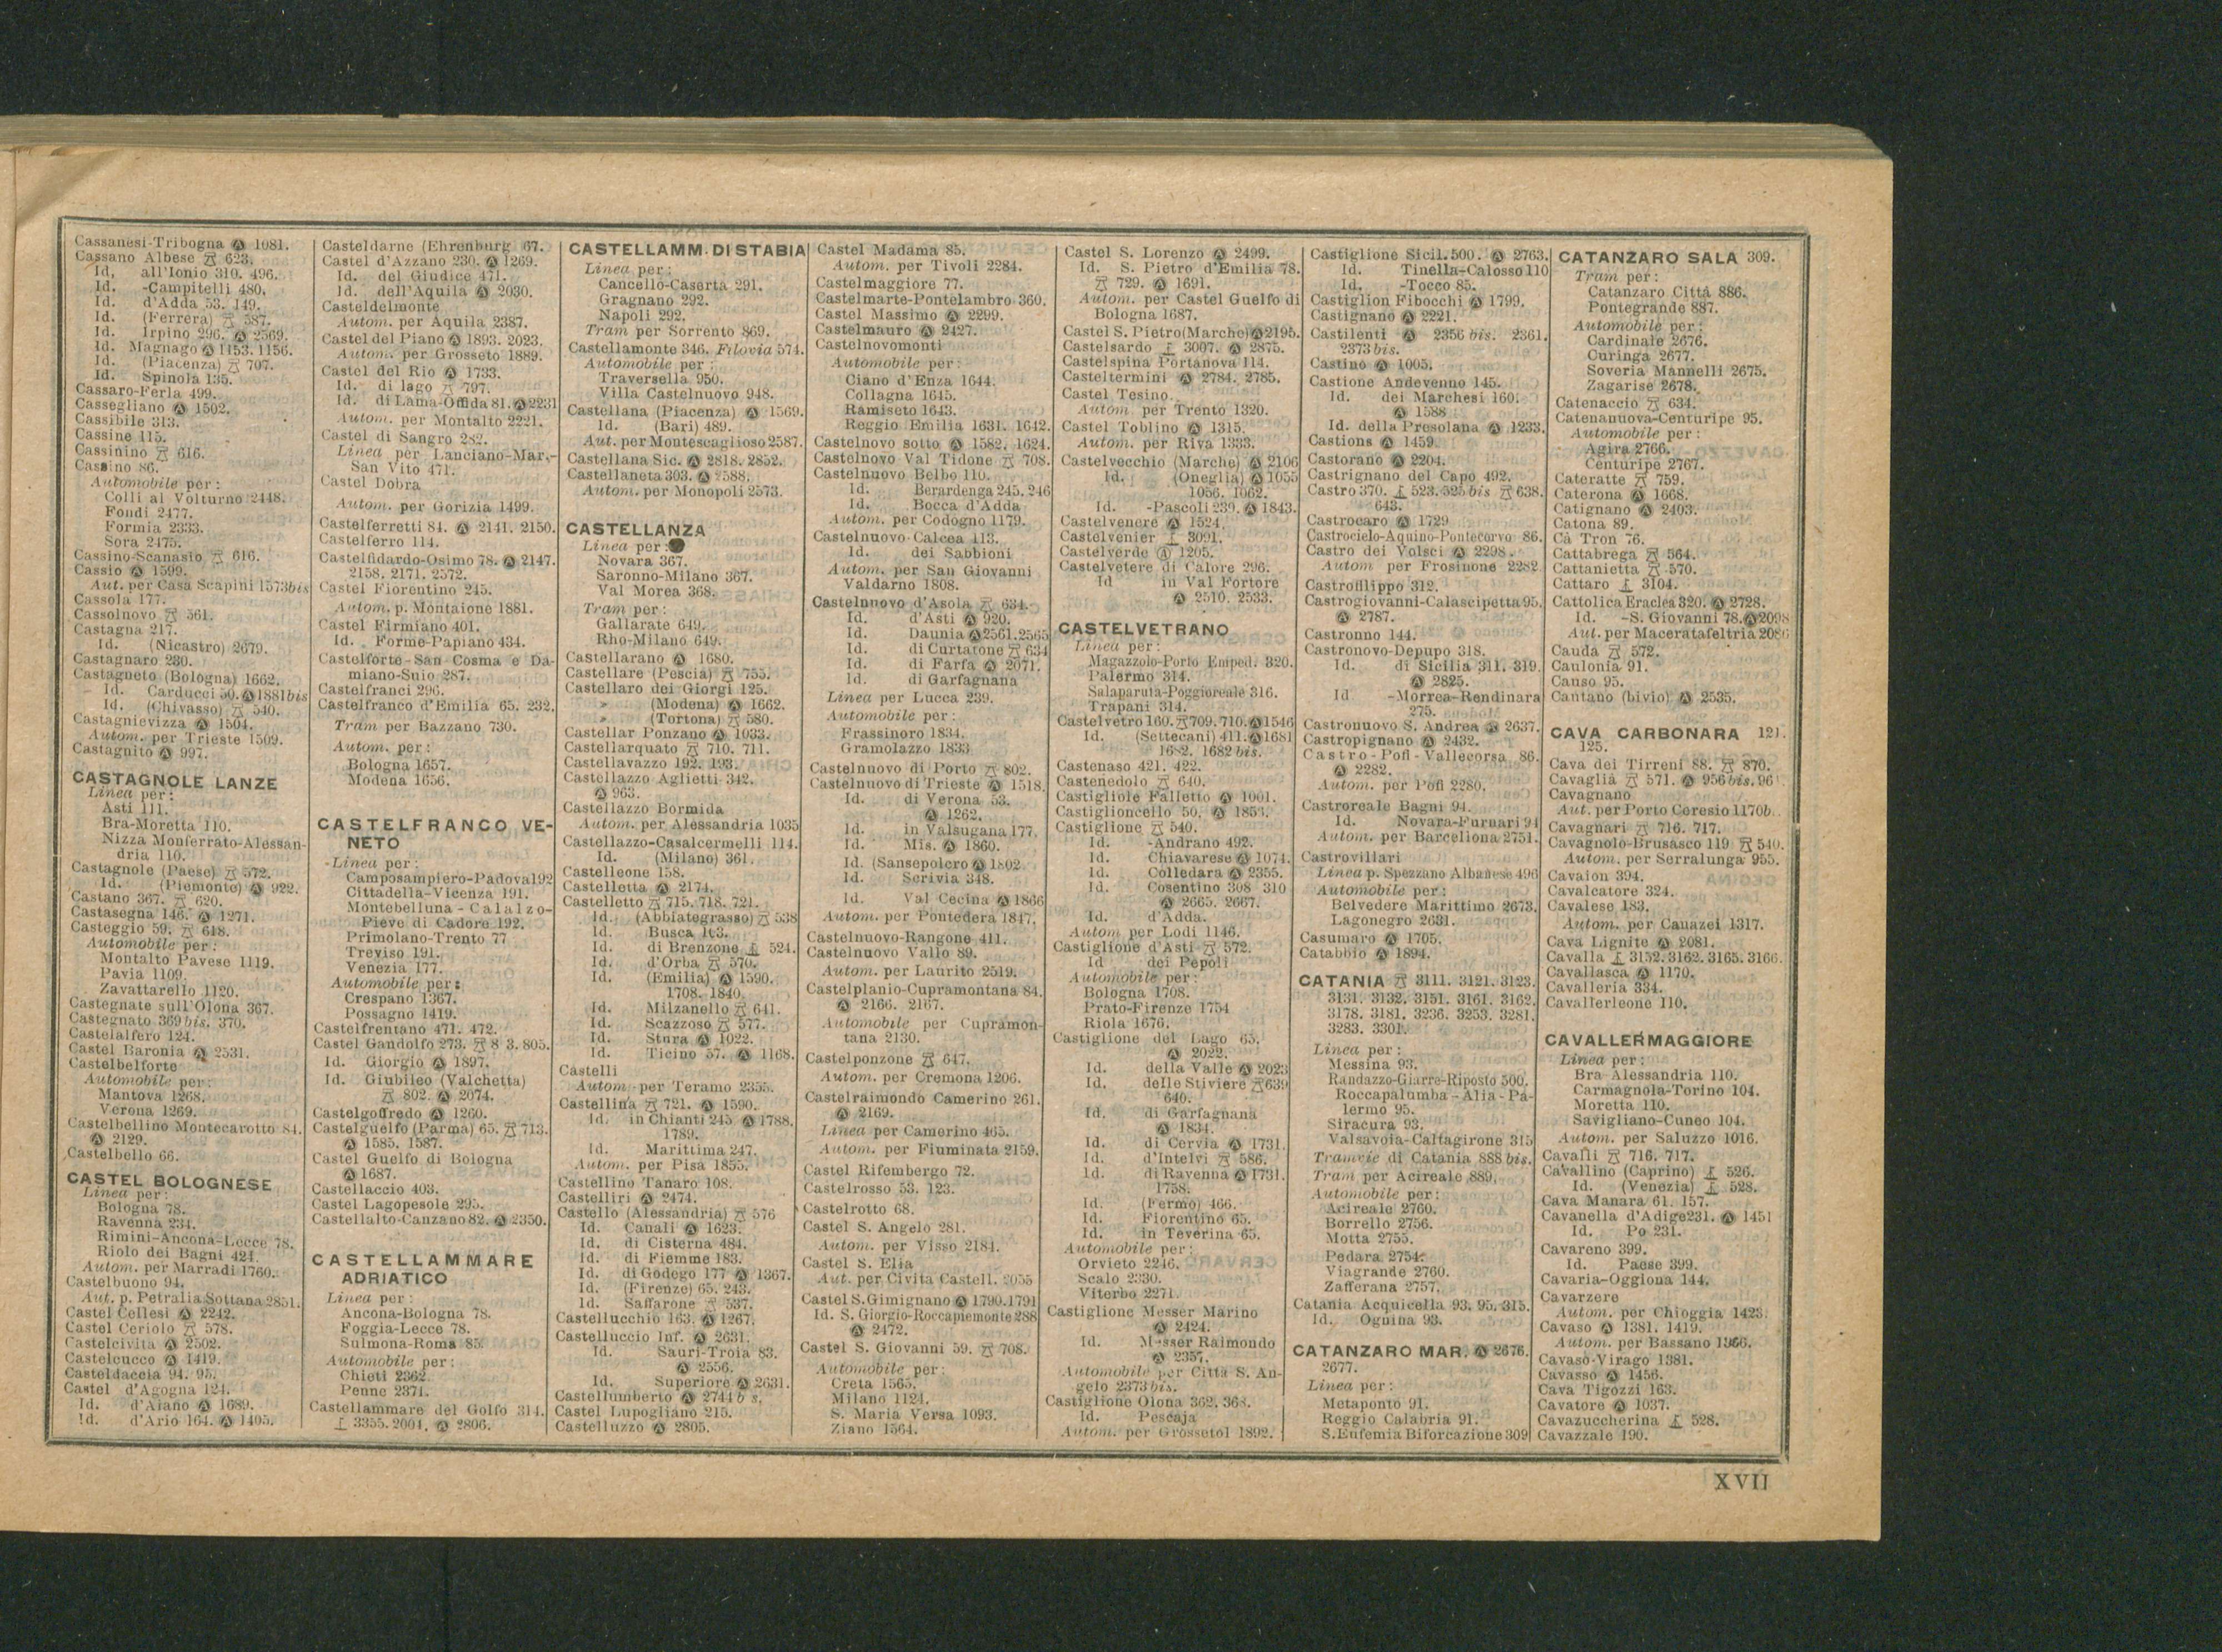 Cassanesi-Tribogna Ⓐ 1081.
Cassano Albese 623.
Id. all'Ionio 310. 496.
Id. -Campitelli 480.
Id. d'Adda 53. 149.
Id. (Ferrera) 587.
Id. Irpino 296. Ⓐ 2569.
Id. Magnago Ⓐ 1153. 1156.
Id. (Piacenza) 707.
Id. Spinola 135.
Cassaro-Ferla 499.
Cassegliano Ⓐ 1502.
Cassibile 313.
Cassine 115.
Cassinino 616.
Cassino 86.
Automobile per:
Colli al Volturno 2448.
Fondi 2477.
Formia 2333.
Sora 2475.
Cassino-Scanasio 616.
Cassio Ⓐ 1599.
Aut. per Casa Scapini 1573bis
Cassola 177.
Cassolnovo 561.
Castagna 217.
Id. (Nicastro) 2679.
Castagnaro 230.
Castagneto (Bologna) 1662.
Id. Carducci 50. Ⓐ 1881bis
Id. (Chivasso) 540.
Castagnievizza Ⓐ 1504.
Autom. per Trieste 1509.
Castagnito Ⓐ 997.
CASTAGNOLE LANZE
Linea per:
Asti 111.
Bra-Moretta 110.
Nizza Monferrato-Alessan-
dria 110.
Castagnole (Paese) 572.
Id. (Piemonte) Ⓐ 922.
Castano 367. 620.
Castasegna 146. Ⓐ 1271.
Casteggio 59. 618.
Automobile per:
Montalto Pavese 1119.
Pavia 1109.
Zavattarello 1120.
Castegnate sull'Olona 367.
Castegnato 369bis. 370.
Castelalfero 124.
Castel Baronia Ⓐ 2531.
Castelbelforte
Automobile per:
Mantova 1268.
Verona 1269.
Castelbellino Montecarotto 84.
Ⓐ 2129.
Castelbello 66.
CASTEL BOLOGNESE
Linea per:
Bologna 78.
Ravenna 234.
Rimini-Ancona-Lecce 78.
Riolo dei Bagni 424.
Autom. per Marradi 1760.
Castelbuono 94.
Aut. p. Petralia Sottana 2851.
Castel Cellesi Ⓐ 2242.
Castel Ceriolo 578.
Castelcivita Ⓐ 2502.
Castelcucco Ⓐ 1419.
Casteldaccia 94. 95.
Castel d'Agogna 124.
Id. d'Aiano Ⓐ 1689.
Id. d'Ario 164. Ⓐ 1405.
Casteldarne (Ehrenburg 67.
Castel d'Azzano 230. Ⓐ 1269.
Id. del Giudice 471.
Id. dell'Aquila Ⓐ 2030.
Casteldelmonte
Autom. per Aquila 2387.
Castel del Piano Ⓐ 1893. 2023.
Autom. per Grosseto 1889.
Castel del Rio Ⓐ 1733.
Id. di lago 797.
Id. di Lama-Offida 81. Ⓐ 2231
Autom. per Montalto 2221.
Castel di Sangro 282.
Linea per Lanciano-Mar.-
San Vito 471.
Castel Dobra
Autom. per Gorizia 1499.
Castelferretti 84. Ⓐ 2141. 2150.
Castelferro 114.
Castelfidardo-Osimo 78. Ⓐ 2147.
2158. 2171. 2572.
Castel Fiorentino 245.
Autom. p. Montaione 1881.
Castel Firmiano 401.
Id. Forme-Papiano 434.
Castelforte-San Cosma e Da-
miano-Suio 287.
Castelfranci 296.
Castelfranco d'Emilia 65. 232.
Tram per Bazzano 730.
Autom. per:
Bologna 1657.
Modena 1656.
CASTELFRANCO VE-
NETO
Linea per:
Camposampiero-Padova192
Cittadella-Vicenza 191.
Montebelluna-Calalzo-
Pieve di Cadore 192.
Primolano-Trento 77
Treviso 191.
Venezia 177.
Automobile per:
Crespano 1367.
Possagno 1419.
Castelfrentano 471. 472.
Castel Gandolfo 273. 8 3. 805.
Id. Giorgio Ⓐ 1897.
Id. Giubileo (Valchetta)
802. Ⓐ 2074.
Castelgoffredo Ⓐ 1260.
Castelguelfo (Parma) 65. 713.
Ⓐ 1585. 1587.
Castel Guelfo di Bologna
Ⓐ 1687.
Castellaccio 403.
Castel Lagopesole 295.
Castellalto-Canzano 82. Ⓐ 2350.
CASTELLAMMARE
ADRIATICO
Linea per:
Ancona-Bologna 78.
Foggia-Lecce 78.
Sulmona-Roma 85.
Automobile per:
Chieti 2362
Penne 2371.
Castellammare del Golfo 314.
3355. 2001. Ⓐ 2806.
CASTELLAMM. DI STABIA
Linea per:
Cancello-Caserta 291.
Gragnano 292.
Napoli 292.
Tram per Sorrento 869.
Castellamonte 346. Filovia 574.
Automobile per:
Traversella 950.
Villa Castelnuovo 948.
Castellana (Piacenza) Ⓐ 1569.
Id. (Bari) 489.
Aut. per Montescaglioso 2587.
Castellana Sic. Ⓐ 2818. 2852.
Castellaneta 303. Ⓐ 2588.
Autom. per Monopoli 2573.
CASTELLANZA
Linea per:
Novara 367.
Saronno-Milano 367.
Val Morea 368.
Tram per:
Gallarate 649.
Rho-Milano 649.
Castellarano Ⓐ 1680.
Castellare (Pescia) 755.
Castellaro dei Giorgi 125.
» (Modena) Ⓐ 1662.
» (Tortona) 580.
Castellar Ponzano Ⓐ 1033.
Castellarquato 710. 711.
Castellavazzo 192. 193.
Castellazzo Aglietti 342.
Ⓐ 963.
Castellazzo Bormida
Autom. per Alessandria 1035
Castellazzo-Casalcermelli 114.
Id. (Milano) 361.
Castelleone 158.
Castelletta Ⓐ 2174.
Castelletto 715. 718. 721.
Id. (Abbiategrasso) 538
Id. Busca 103.
Id. di Brenzone 524.
Id. d'Orba 570.
Id. (Emilia) Ⓐ 1590.
1708. 1840.
Id. Milzanello 641.
Id. Scazzoso 577.
Id. Stura Ⓐ 1022.
Id. Ticino 57. Ⓐ 1168.
Castelli
Autom. per Teramo 2355.
Castellina 721. Ⓐ 1590.
Id. in Chianti 245 Ⓐ 1788.
1789.
Id. Marittima 247.
Autom. per Pisa 1855.
Castellino Tanaro 108.
Castelliri Ⓐ 2474.
Castello (Alessandria) 576
Id. Canali Ⓐ 1623.
Id. di Cisterna 484.
Id. di Fiemme 183.
Id. di Godego 177 Ⓐ 1367.
Id. (Firenze) 65. 243.
Id. Saffarone 537.
Castellucchio 163. Ⓐ 1267.
Castelluccio Inf. Ⓐ 2631.
Id. Sauri-Troia 83.
Ⓐ 2556.
Id. Superiore Ⓐ 2631.
Castellumberto Ⓐ 2744 b s.
Castel Lupogliano 215.
Castelluzzo Ⓐ 2805.
Castel Madama 85.
Autom. per Tivoli 2284.
Castelmaggiore 77.
Castelmarte-Pontelambro 360.
Castel Massimo Ⓐ 2299.
Castelmauro Ⓐ 2427.
Castelnovomonti
Automobile per:
Ciano d'Enza 1644.
Collagna 1645.
Ramiseto 1643.
Reggio Emilia 1631. 1642.
Castelnovo sotto Ⓐ 1582. 1624.
Castelnovo Val Tidone 708.
Castelnuovo Belbo 110.
Id. Berardenga 245. 246
Id. Bocca d'Adda
Autom. per Codogno 1179.
Castelnuovo-Calcea 113.
Id. dei Sabbioni
Autom. per San Giovanni
Valdarno 1808.
Castelnuovo d'Asola 634.
Id. d'Asti Ⓐ 920.
Id. Daunia Ⓐ 2561. 2565
Id. di Curtatone 634
Id. di Farfa Ⓐ 2071.
Id. di Garfagnana
Linea per Lucca 239.
Automobile per:
Frassinoro 1834.
Gramolazzo 1833
Castelnuovo di Porto 802.
Castelnuovo di Trieste Ⓐ 1518.
Id. di Verona 53.
Ⓐ 1262.
Id. in Valsugana 177.
Id. Mis. Ⓐ 1860.
Id. (Sansepolcro Ⓐ 1802
Id. Scrivia 348.
Id. Val Cecina Ⓐ 1866
Autom. per Pontedera 1847.
Castelnuovo-Rangone 411.
Castelnuovo Vallo 89.
Autom. per Laurito 2519.
Castelplanio-Cupramontana 84.
Ⓐ 2166. 2167.
Automobile per Cupramon-
tana 2130.
Castelponzone 647.
Autom. per Cremona 1206.
Castelraimondo Camerino 261.
Ⓐ 2169.
Linea per Camerino 465.
Autom. per Fiuminata 2159.
Castel Rifembergo 72.
Castelrosso 53. 123.
Castelrotto 68.
Castel S. Angelo 281.
Autom. per Visso 2184.
Castel S. Elia
Aut. per Civita Castell. 2055
Castel S. Gimignano Ⓐ 1790. 1791
Id. S. Giorgio-Roccapiemonte 288
Ⓐ 2472.
Castel S. Giovanni 59. 708.
Automobile per:
Creta 1565.
Milano 1124.
S. Maria Versa 1093.
Ziano 1564.
Castel S. Lorenzo Ⓐ 2499.
Id. S. Pietro d'Emilia 78.
729. Ⓐ 1691.
Autom. per Castel Guelfo di
Bologna 1687.
Castel S. Pietro (Marche) Ⓐ 2195.
Castelsardo 3007. Ⓐ 2875.
Castelspina Portanova 114.
Casteltermini Ⓐ 2784. 2785.
Castel Tesino
Autom per Trento 1320.
Castel Toblino Ⓐ 1315.
Autom. per Riva 1333.
Castelvecchio (Marche) Ⓐ 2106
Id. (Oneglia) Ⓐ 1055
1056. 1062.
Id. -Pascoli 239. Ⓐ 1843.
Castelvenere Ⓐ 1524.
Castelvenier 3091.
Castelverde Ⓐ 1205.
Castelvetere di Calore 296.
Id in Val Fortore
Ⓐ 2510. 2533.
CASTELVETRANO
Linea per:
Magazzolo-Porto Emped. 320.
Palermo 314.
Salaparuta-Poggioreale 316.
Trapani 314.
Castelvetro 160. 709. 710. Ⓐ 1546
Id. (Settecani) 411. Ⓐ 1681
1682. 1682 bis.
Castenaso 421. 422.
Castenedolo 640.
Castigliole Falletto Ⓐ 1001.
Castiglioncello 50. Ⓐ 1853.
Castiglione 540.
Id. -Andrano 492.
Id. Chiavarese Ⓐ 1074.
Id. Colledara Ⓐ 2355.
Id. Cosentino 308 310
Ⓐ 2665. 2667.
Id. d'Adda.
Autom per Lodi 1146.
Castiglione d'Asti 572.
Id dei Pepoli
Automobile per:
Bologna 1708.
Prato-Firenze 1754
Riola 1676.
Castiglione del Lago 65.
Ⓐ 2022.
Id. della Valle Ⓐ 2023
Id. delle Stiviere 639
640.
Id. di Garfagnana
Ⓐ 1834.
Id. di Cervia Ⓐ 1731.
Id. d'Intelvi 586.
Id. di Ravenna Ⓐ 1731.
1758.
Id. (Fermo) 466.
Id. Fiorentino 65.
Id. in Teverina 65.
Automobile per:
Orvieto 2246.
Scalo 2330.
Viterbo 2271.
Castiglione Messer Marino
Ⓐ 2424.
Id. Messer Raimondo
Ⓐ 2357.
Automobile per Città S. An-
gelo 2373bis.
Castiglione Olona 362. 368.
Id. Pescaja
Autom. per Grossetol 1892.
Castiglione Sicil. 500. Ⓐ 2763.
Id. Tinella-Calosso 110
Id. -Tocco 85.
Castiglion Fibocchi Ⓐ 1799.
Castignano Ⓐ 2221.
Castilenti Ⓐ 2356 bis. 2361.
2373 bis.
Castino Ⓐ 1005.
Castione Andevenno 145.
Id. dei Marchesi 160.
Ⓐ 1588
Id. della Presolana Ⓐ 1233.
Castions Ⓐ 1459.
Castorano Ⓐ 2204.
Castrignano del Capo 492.
Castro 370. 523. 525 bis 638.
643.
Castrocaro Ⓐ 1729
Castrocielo-Aquino-Pontecorvo 86.
Castro dei Volsci Ⓐ 2298.
Autom per Frosinone 2282
Castrofilippo 312.
Castrogiovanni-Calascipetta 95.
Ⓐ 2787.
Castronno 144.
Castronovo-Depupo 318.
Id. di Sicilia 311. 319.
Ⓐ 2825.
Id -Morrea-Rendinara
275.
Castronuovo S. Andrea Ⓐ 2637.
Castropignano Ⓐ 2432.
Castro-Pofi-Vallecorsa 86.
Ⓐ 2282.
Autom. per Pofi 2280.
Castroreale Bagni 94.
Id. Novara-Furnari 94
Autom. per Barcellona 2751.
Castrovillari
Linea p. Spezzano Albanese 496
Automobile per:
Belvedere Marittimo 2673.
Lagonegro 2631.
Casumaro Ⓐ 1705.
Catabbio Ⓐ 1894.
CATANIA 3111. 3121. 3123.
3131. 3132. 3151. 3161. 3162.
3178. 3181. 3236. 3253. 3281.
3283. 3301.
Linea per:
Messina 93.
Randazzo-Giarre-Riposto 500.
Roccapalumba-Alia-Pa-
lermo 95.
Siracura 93.
Valsavoia-Caltagirone 315
Tramvie di Catania 888 bis.
Tram per Acireale 889.
Automobile per:
Acireale 2760.
Borrello 2756.
Motta 2755.
Pedara 2754.
Viagrande 2760.
Zafferana 2757.
Catania Acquicella 93. 95. 315.
Id. Ognina 93.
CATANZARO MAR. Ⓐ 2676.
2677.
Linea per:
Metaponto 91.
Reggio Calabria 91.
S. Eufemia Biforcazione 309
CATANZARO SALA 309.
Tram per:
Catanzaro Città 886.
Pontegrande 887.
Automobile per:
Cardinale 2676.
Curinga 2677.
Soveria Mannelli 2675.
Zagarise 2678.
Catenaccio 634.
Catenanuova-Centuripe 95.
Automobile per:
Agira 2766.
Centuripe 2767.
Cateratte 759.
Caterona Ⓐ 1668.
Catignano Ⓐ 2403.
Catona 89.
Cà Tron 76.
Cattabrega 564.
Cattanietta 570.
Cattaro 3104.
Cattolica Eraclea 320. Ⓐ 2728.
Id. -S. Giovanni 78. Ⓐ 2098
Aut. per Maceratafeltria 2086
Cauda 572.
Caulonia 91.
Causo 95.
Cautano (bivio) Ⓐ 2535.
CAVA CARBONARA 121.
125.
Cava dei Tirreni 88. 870.
Cavaglià 571. Ⓐ 956bis. 96
Cavagnano
Aut. per Porto Ceresio 1170b.
Cavagnari 716. 717.
Cavagnolo-Brusasco 119 540.
Autom. per Serralunga 955.
Cavaion 394.
Cavalcatore 324.
Cavalese 183.
Autom. per Canazei 1317.
Cava Lignite Ⓐ 2081.
Cavalla 3152. 3162. 3165. 3166.
Cavallasca Ⓐ 1170.
Cavalleria 334.
Cavallerleone 110.
CAVALLERMAGGIORE
Linea per:
Bra Alessandria 110.
Carmagnola-Torino 104.
Moretta 110.
Savigliano-Cuneo 104.
Autom. per Saluzzo 1016.
Cavalli 716. 717.
Cavallino (Caprino) 526.
Id. (Venezia) 528.
Cava Manara 61. 157.
Cavanella d'Adige 231. Ⓐ 1451
Id. Po 231.
Cavareno 399.
Id. Paese 399.
Cavaria-Oggiona 144.
Cavarzere
Autom. per Chioggia 1423.
Cavaso Ⓐ 1381. 1419.
Autom. per Bassano 1366.
Cavaso-Virago 1381.
Cavasso Ⓐ 1456.
Cava Tigozzi 163.
Cavatore Ⓐ 1037.
Cavazuccherina 528.
Cavazzale 190.
XVII